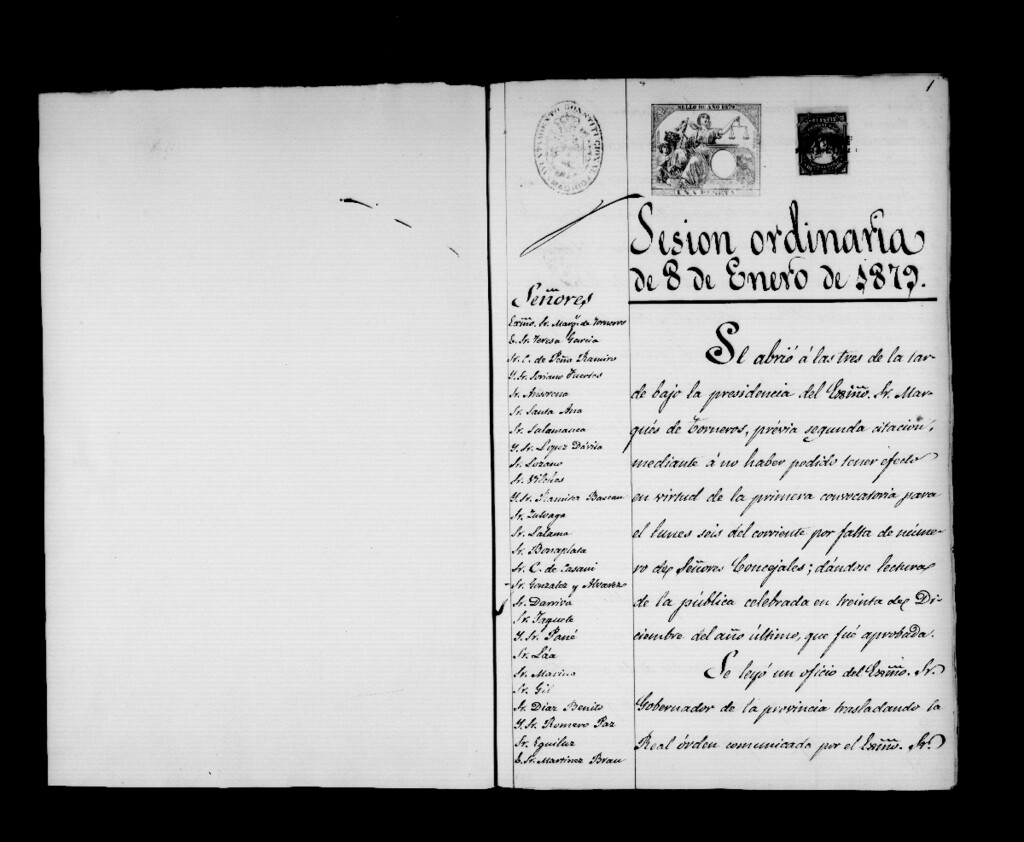 1
AYUNTAMIENTO CONSTITUCIONAL
MADRID
SELLO DE AÑO 1879
UNA PESETA
Sesion ordinaria
de 8 de Enero de 1879.
Señores
Excmo. Sr. Marqs. de Torneros
E. Sr. Teresa Garcia
Sr. C. de Peña Ramiro
Y. Sr. Soriano Fuertes
Sr. Ansorena
Sr. Santa Ana
Sr. Salamanca
Y. Sr. Lopez Dávila
Sr. Lozano
Sr. Vilches
Y. Sr. Ramirez Bascan
Sr. Zuloaga
Sr. Salama
Sr. Bonaplata
Sr. C. de Casani
Sr. Gonzalez y Alvarez
Sr. Darriva
Sr. Jaquete
Y. Sr. Pané
Sr. Láa
Sr. Marina
Sr. Gil
Sr. Diaz Benito
Y. Sr. Romero Paz
Sr. Eguiluz
E. Sr. Martinez Brau
Se abrió á las tres de la tar-
de bajo la presidencia del Excmo. Sr. Mar-
qués de Torneros, prévia segunda citacion,
mediante á no haber podido tener efecto
en virtud de la primera convocatoria para
el lunes seis del corriente por falta de núme-
ro de Señores Concejales; dándose lectura
de la pública celebrada en treinta de Di-
ciembre del año último, que fué aprobada.
Se leyó un oficio del Excmo. Sr.
Gobernador de la provincia trasladando la
Real órden comunicada por el Excmo. Sr.